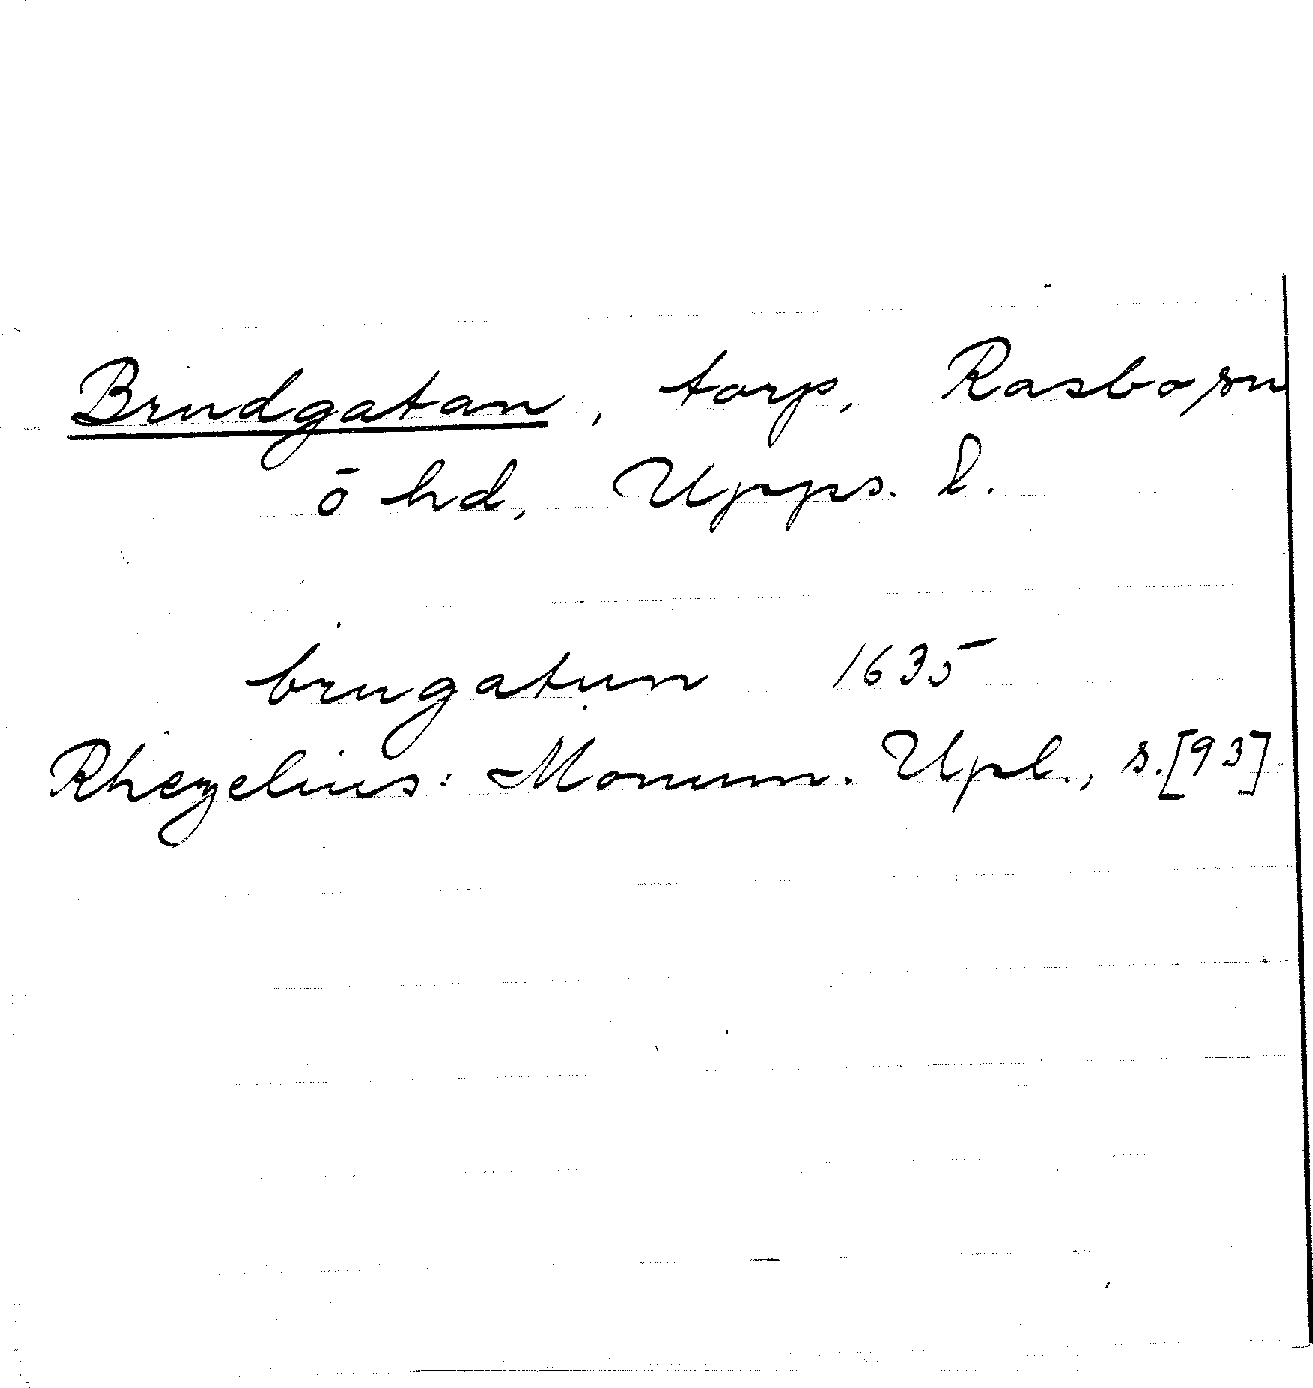 Brudgatan, torp, Rasbo sn
ō hd, Upps. l.
brugatun 1635
Rhezelius: Monum. Upl., s. [93]